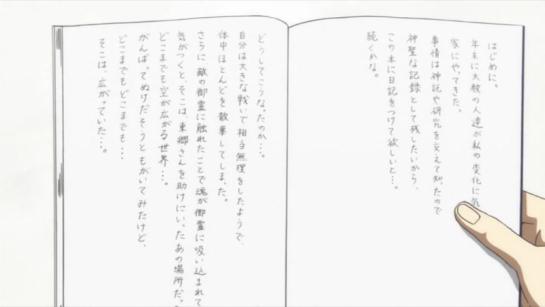 はじめに。
年末に大赦の人達が私の変化に気
家にやってきた。
事情は神託や研究を交えて知ったので
神聖な記録として残したいから、
この本に日記をつけて欲しいと…。
続くわな。
どうしてこうなったのか…。
自分は大きな戦いで相当無理をしたようで、
体中ほとんどを散華してしまった。
さらに敵の御霊に触れたことで魂が御霊に吸い込まれて
気がつくと、そこは、東郷さんを助けにいったあの場所だっ
どこまでも空が広がる世界…。
がんばってぬけだそうともがいてみたけど、
どこまでもどこまでも…
そこは、広がっていた…。